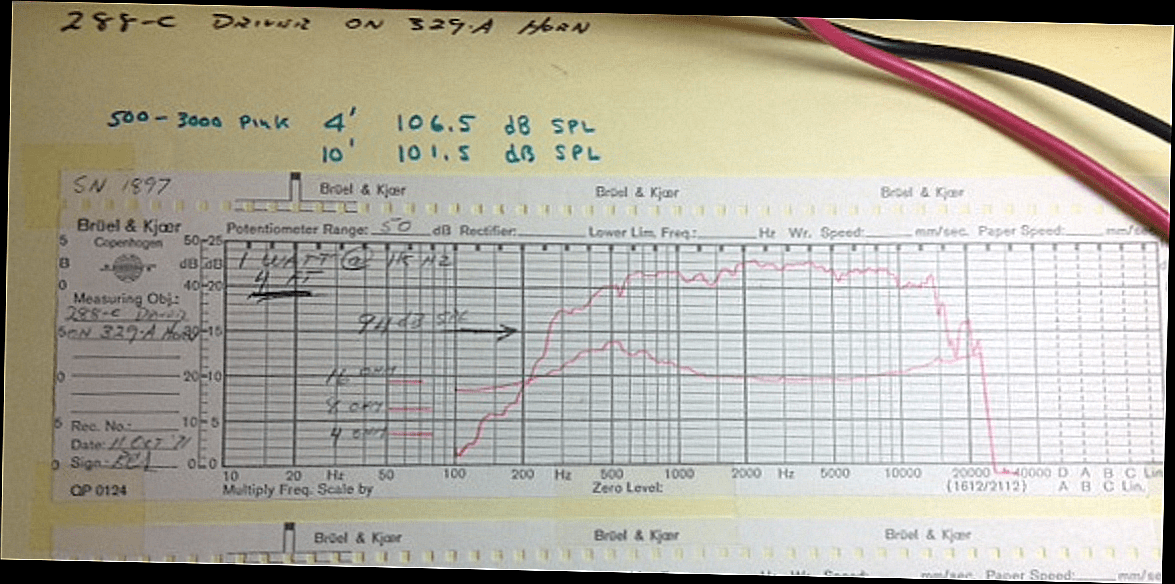 288-C DRIVER ON 329-A HORN
500-3000 PINK 4' 106.5 dB SPL
10' 101.5 dB SPL
SN 1897
Brüel & Kjær Brüel & Kjær Brüel & Kjær
Brüel & Kjær
Copenhagen
Potentiometer Range: 50 dB Rectifier: Lower Lim. Freq.: Hz Wr. Speed: mm/sec. Paper Speed: mm/se
5 50 25
B dB dB
0 40 20
1 WATT @ 1K HZ
4 FT
Measuring Obj.:
288-C DRIVER
ON 329-A HORN
5 30 15
94 dB SPL
0 20 10
16 OHM
8 OHM
4 OHM
5 10 5
Rec. No.:
Date: 11 OCT 71
Sign.:
0 0 0
QP 0124
10 20 Hz 50 100 200 Hz 500 1000 2000 Hz 5000 10000 20000 40000 D A B C Lin
Multiply Freq. Scale by Zero Level: (1612/2112) A B C Lin.
Brüel & Kjær Brüel & Kjær Brüel & Kjær
Hz Wr. Speed: mm/sec. Paper Speed: mm/se